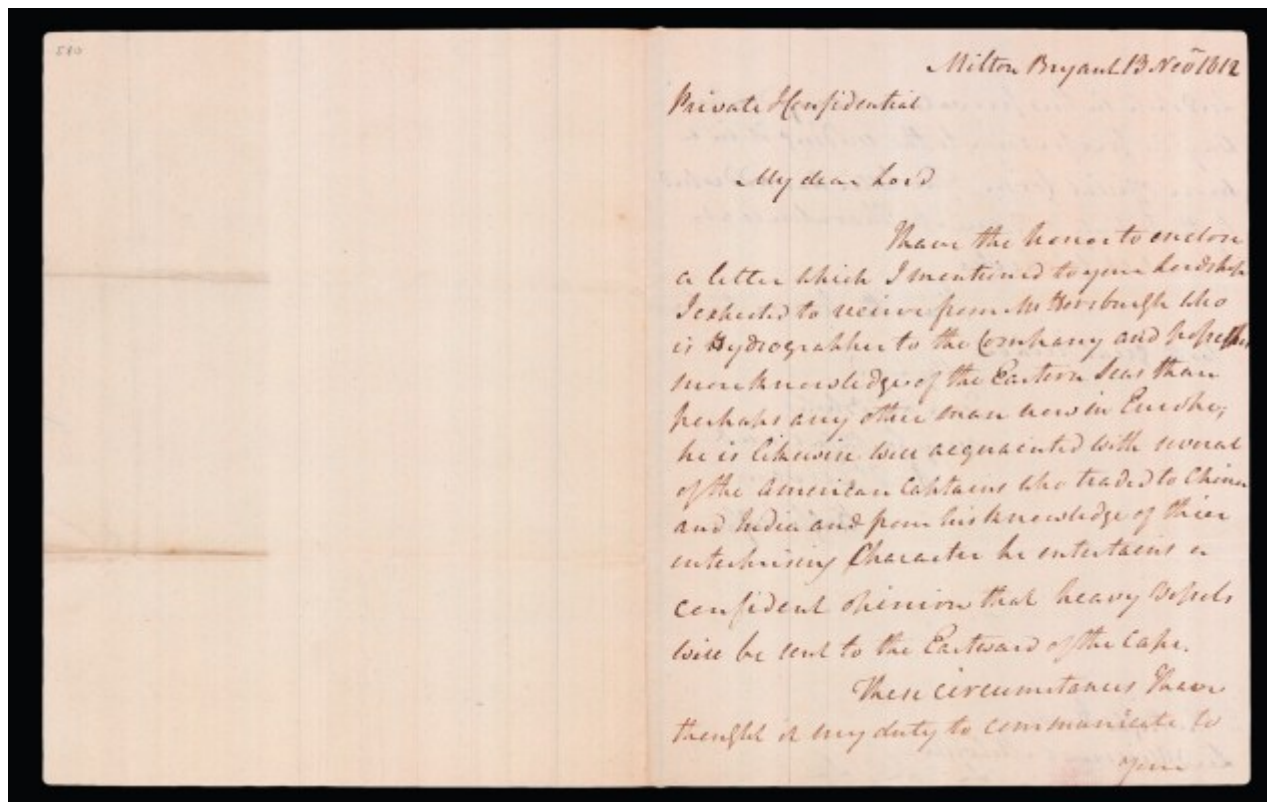 580
Milton Bryant 13 Nov 1812
Private & Confidential
My dear Lord
I have the honor to enclose
a letter which I mentioned to your Lordship
I expected to receive from Mr Horsburgh who
is Hydrographer to the Company and possesses
more knowledge of the Eastern Seas than
perhaps any other man now in Europe,
he is likewise well acquainted with several
of the American Captains who traded to China
and India and from his knowledge of thier
enterprising Character he entertains a
confident opinion that heavy Vessels
will be sent to the Eastward of the Cape.
These circumstances I have
thought it my duty to communicate to
your